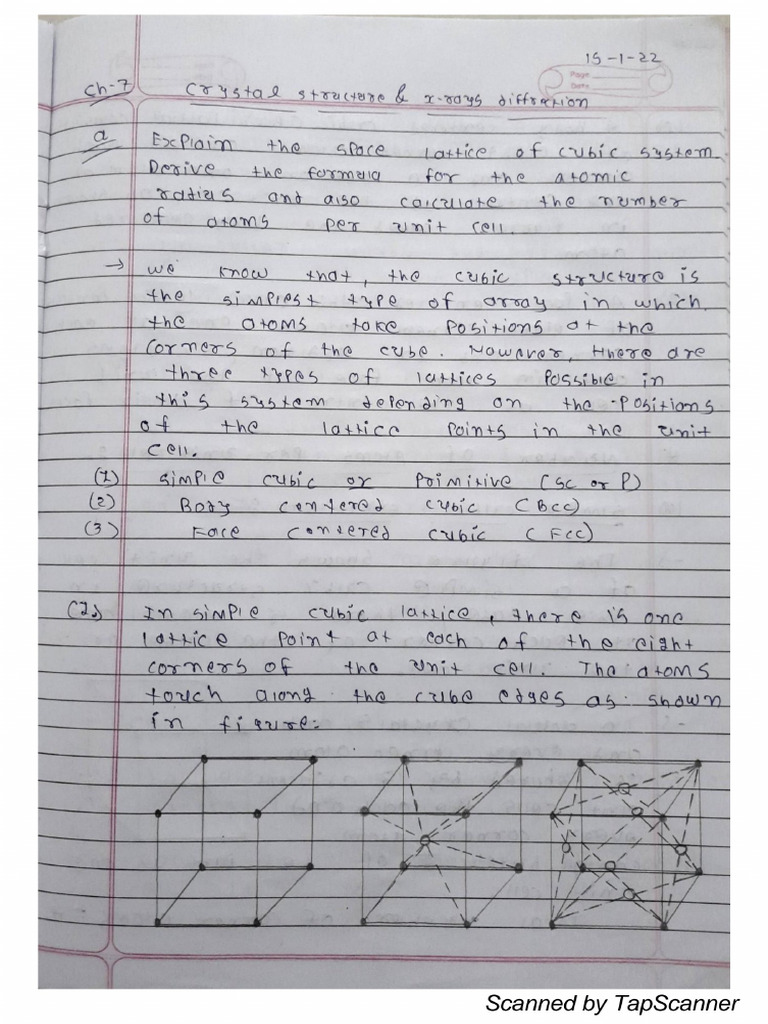 15-1-22
Page
Date
Ch-7 Crystal structure & x-rays diffration
Q Explain the space lattice of cubic system.
Derive the formula for the atomic
radius and also calculate the number
of atoms per unit cell.
→ we know that, the cubic structure is
the simplest type of array in which
the atoms take positions at the
corners of the cube. However, there are
three types of lattices possible in
this system depending on the positions
of the lattice points in the unit
cell.
(1) simple cubic or Primitive (SC or P)
(2) Body centered cubic (BCC)
(3) Face centered cubic (FCC)
(1) In simple cubic lattice, there is one
lattice point at each of the eight
corners of the unit cell. The atoms
touch along the cube edges as shown
in figure:
Scanned by TapScanner